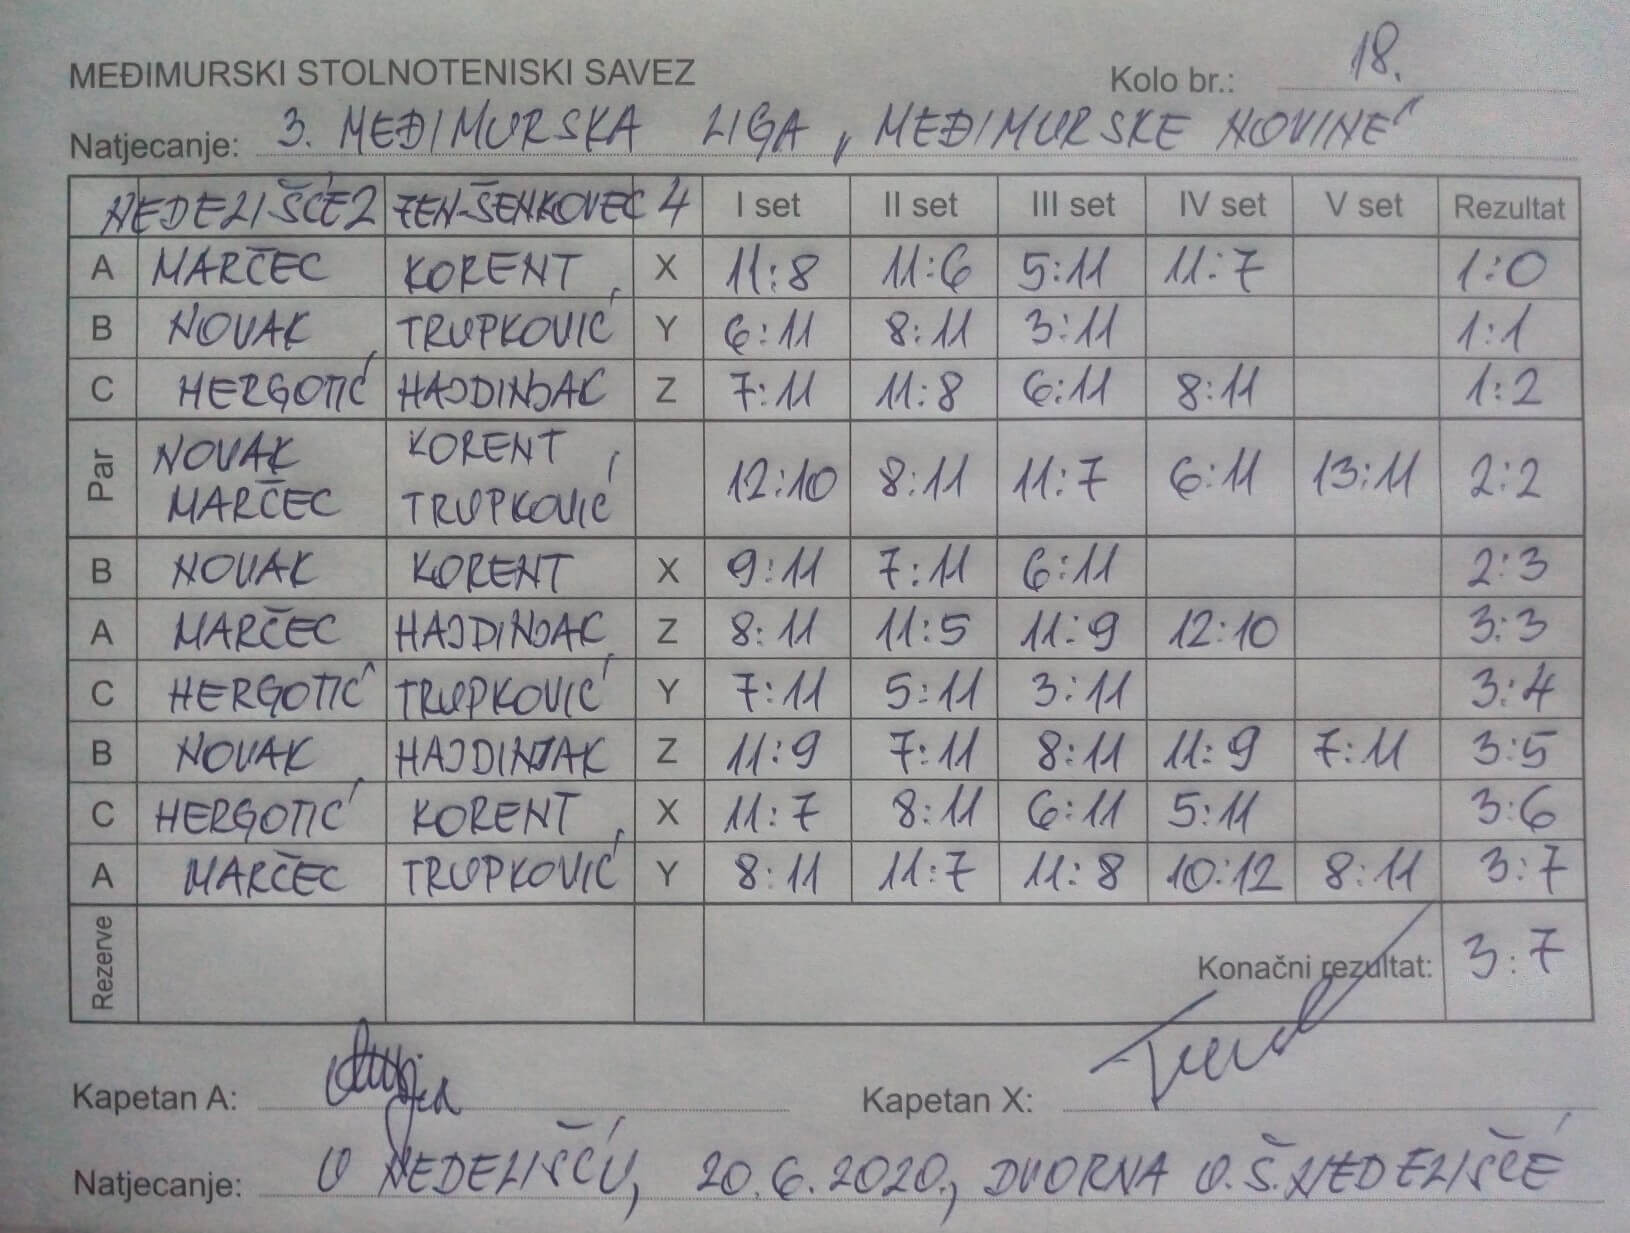 MEĐIMURSKI STOLNOTENISKI SAVEZ Kolo br.: 18.
Natjecanje: 3. MEĐIMURSKA LIGA „MEĐIMURSKE NOVINE“
NEDELIŠĆE 2 ZEN-ŠENKOVEC 4 I set II set III set IV set V set Rezultat
A MARČEC KORENT X 11:8 11:6 5:11 11:7 1:0
B NOVAK TRUPKOVIĆ Y 6:11 8:11 3:11 1:1
C HERGOTIĆ HAJDINJAK Z 7:11 11:8 6:11 8:11 1:2
Par NOVAK MARČEC KORENT TRUPKOVIĆ 12:10 8:11 11:7 6:11 13:11 2:2
B NOVAK KORENT X 9:11 7:11 6:11 2:3
A MARČEC HAJDINJAK Z 8:11 11:5 11:9 12:10 3:3
C HERGOTIĆ TRUPKOVIĆ Y 7:11 5:11 3:11 3:4
B NOVAK HAJDINJAK Z 11:9 7:11 8:11 11:9 7:11 3:5
C HERGOTIĆ KORENT X 11:7 8:11 6:11 5:11 3:6
A MARČEC TRUPKOVIĆ Y 8:11 11:7 11:8 10:12 8:11 3:7
Rezerve Konačni rezultat: 3:7
Kapetan A: Kapetan X:
Natjecanje: U NEDELIŠĆU, 20.6.2020., DVORNA O.Š. NEDELIŠĆE